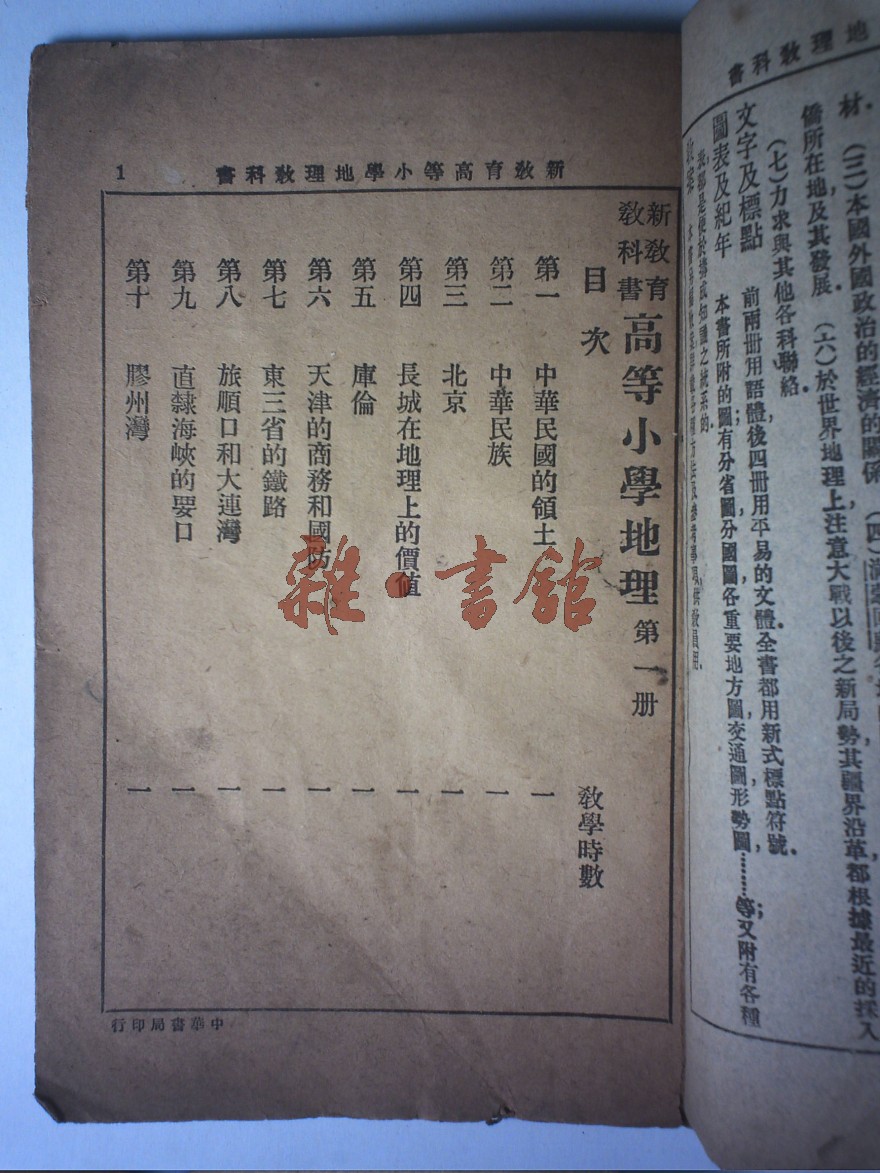 地理教科書
材．(三)本國外國政治的經濟的關係．(四)
僑所在地及其發展．(六)於世界地理上注意大戰以後之新局勢，其疆界沿革，都根據最近的採入．
(七)力求與其他各科聯絡．
文字及標點　前兩册用語體，後四册用平易的文體；全書都用新式標點符號．
圖表及紀年　本書所附的圖，有分省圖，分國圖，各重要地方圖，交通圖，形勢圖，………等；又附有各種
表，都是便於構成知識之統系的．
新教育高等小學地理教科書
1
新教育教科書高等小學地理第一册
目次　教學時數
第一　中華民國的領土　一
第二　中華民族　一
第三　北京　一
第四　長城在地理上的價值　一
第五　庫倫　一
第六　天津的商務和國防　一
第七　東三省的鐵路　一
第八　旅順口和大連灣　一
第九　直隸海峽的要口　一
第十　膠州灣　一
中華書局印行
雜·書館